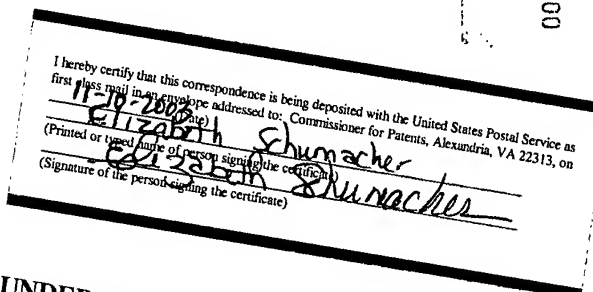 00
I hereby certify that this correspondence is being deposited with the United States Postal Service as
first class mail in an envelope addressed to: Commissioner for Patents, Alexandria, VA 22313, on
11-10-2003
(Date)
Elizabeth Schumacher
(Printed or typed name of person signing the certificate)
Elizabeth Schumacher
(Signature of the person signing the certificate)
UNDER